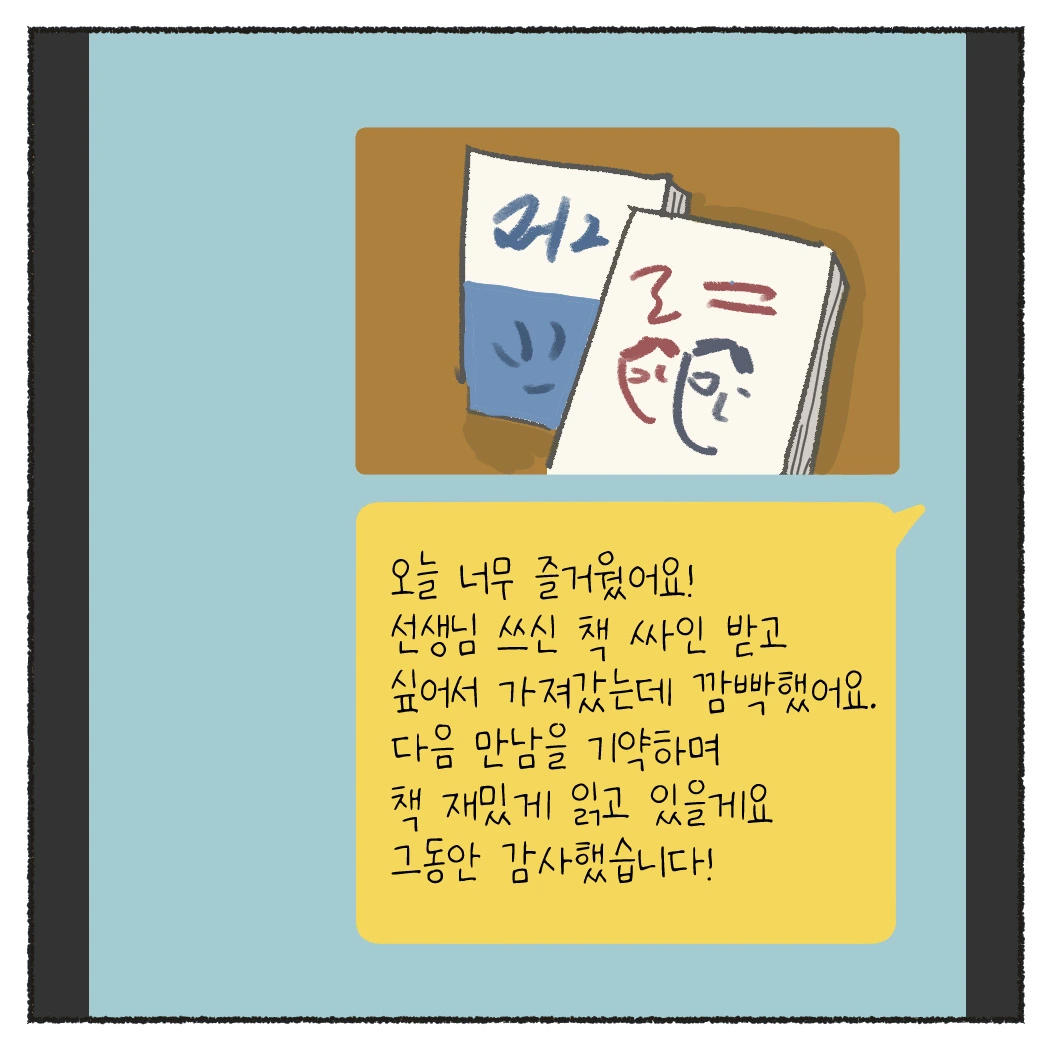 오늘 너무 즐거웠어요!
선생님 쓰신 책 싸인 받고
싶어서 가져갔는데 깜빡했어요.
다음 만남을 기약하며
책 재밌게 읽고 있을게요
그동안 감사했습니다!